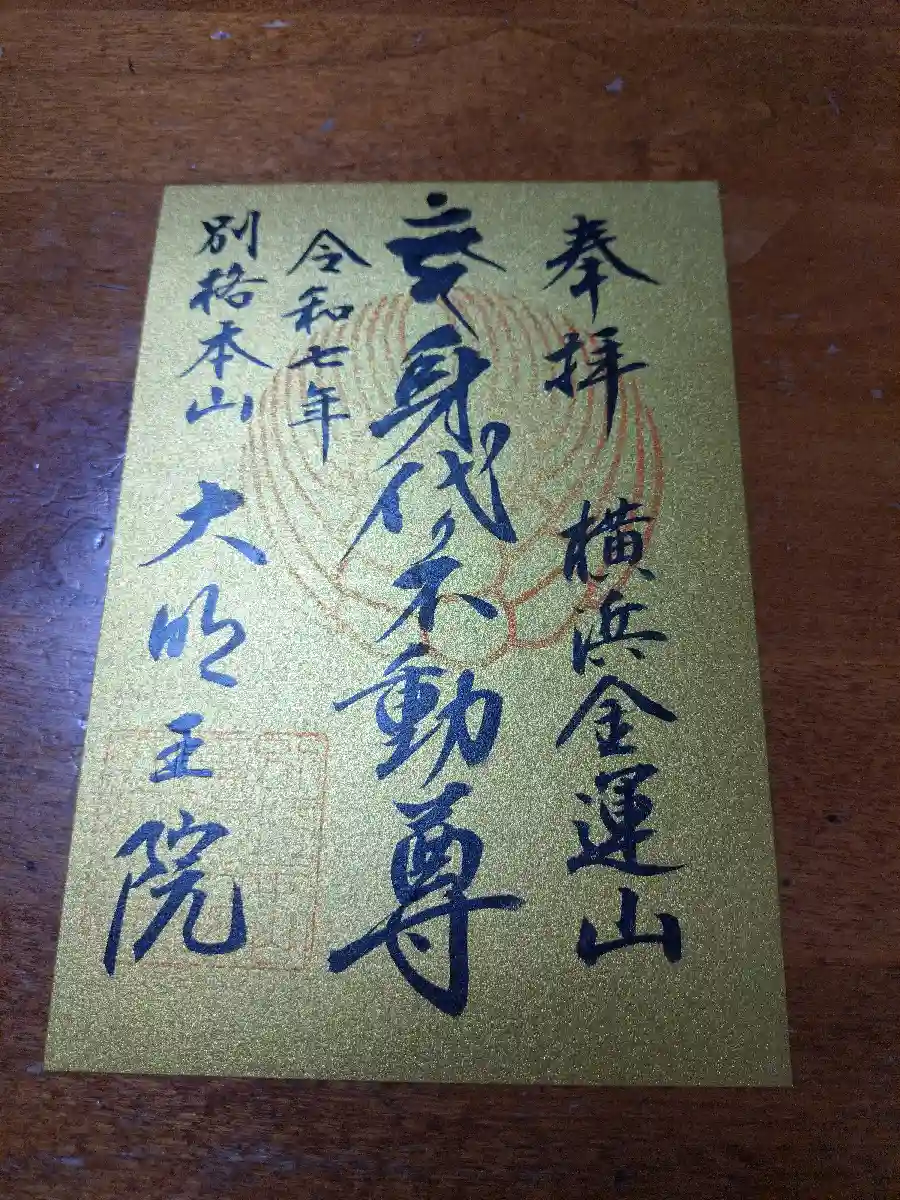 奉拝 横浜金運山
身代り不動尊
令和七年
別格本山 大明王院